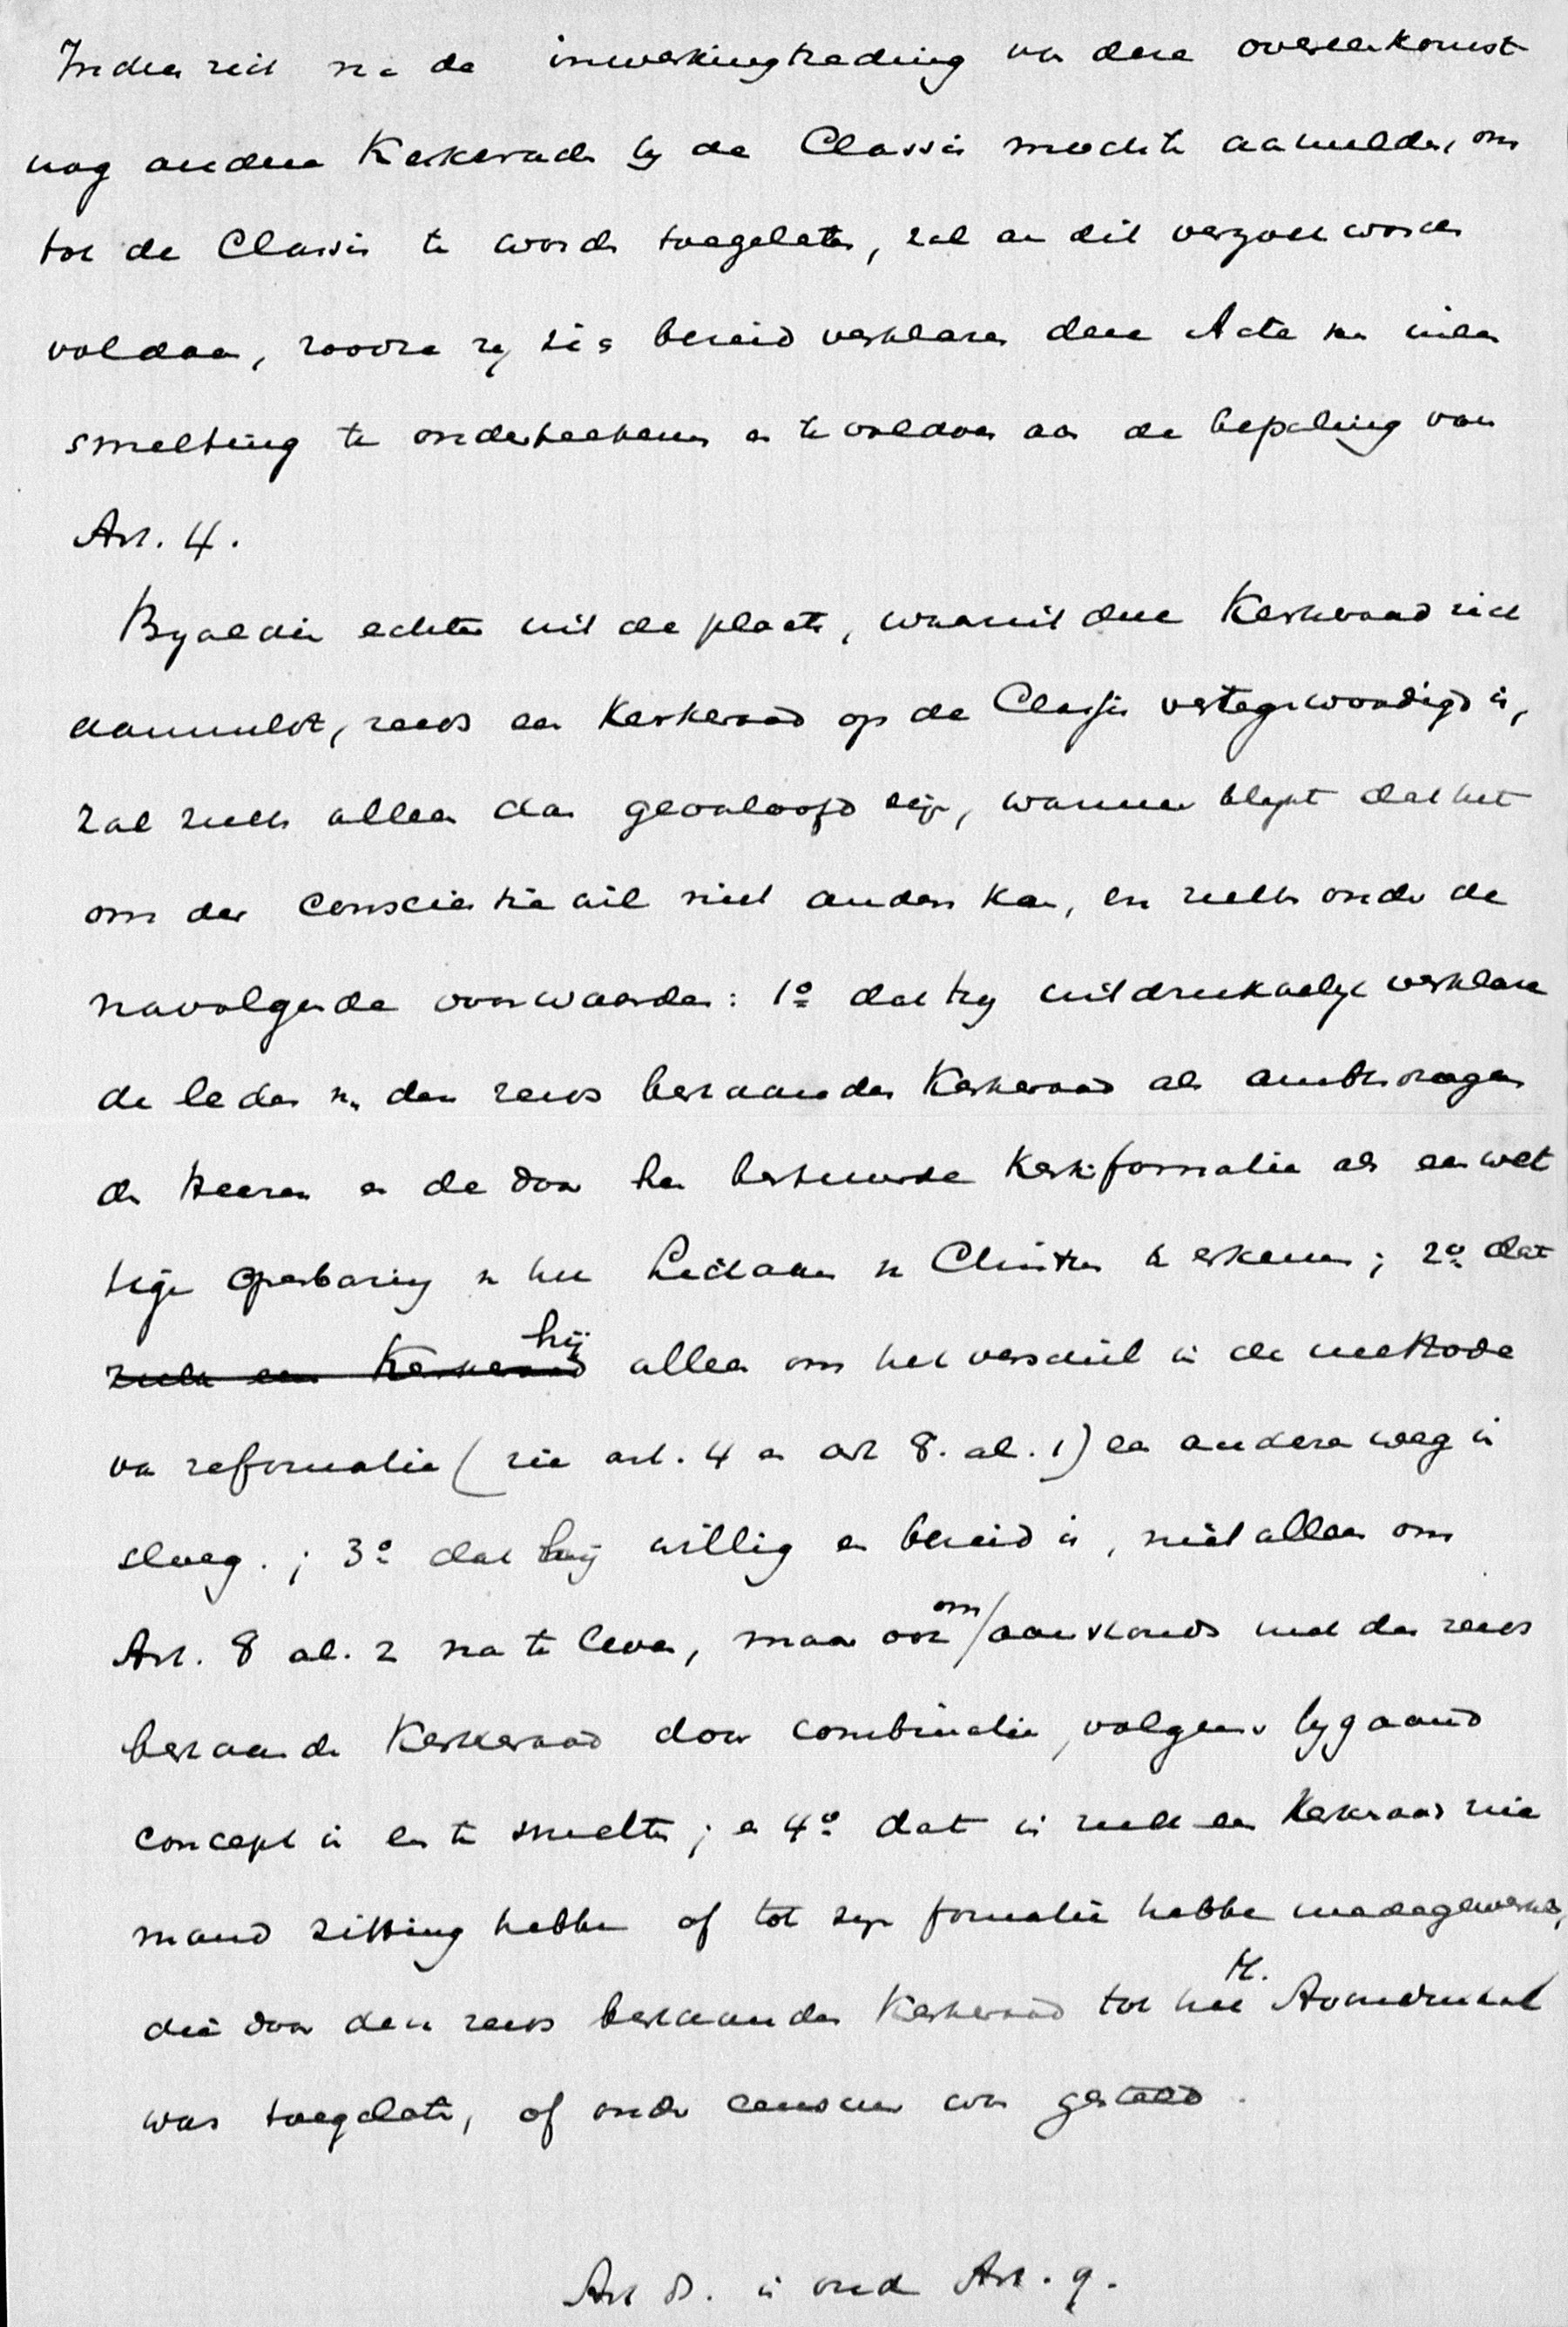 Indien zich na de inwerkingtreding van deze overeenkomst
nog andere Kerkeraden by de Classis mochten aanmelden, om
tot de Classis te worden toegelaten, zal aan dit verzoek worden
voldaan, zoodra zy zich bereid verklaren deze Acte van ineen
smelting te onderteekenen en te voldoen aan de bepaling van
Art. 4.
Byaldien echter uit de plaats, waaruit deze Kerkeraad zich
aanmeldt, reeds een Kerkeraad op de Classis vertegenwoordigd is,
zal zulks alleen dan geoorloofd zijn, wanneer blykt dat het
om der conscientie wil niet anders kan, en zulks onder de
navolgende voorwaarden: 1o dat hy uitdrukkelyk verklare
de leden van den reeds bestaanden Kerkeraad als ambtsdragers
des Heeren en de door hen bestuurde Kerkformatie als een wet
tige openbaring van het Lichaam van Christus te erkennen; 2o dat
zulk een Kerkeraad hij alleen om het verschil in de methode
van reformatie (zie art. 4 en art 8. al. 1) een andere weg in
sloeg.; 3o dat hij willig en bereid is, niet alleen om
Art. 8 al. 2 na te leven, maar ook om aanstonds met den reeds
bestaanden Kerkeraad door combinatie, volgens bygaand
concept in een te smelten; en 4o dat in zulk een Kerkeraad nie
mand zitting hebbe of tot zijn formatie hebbe medegewerkt,
die door den reeds bestaanden Kerkeraad tot het H. Avondmaal
was toegelaten, of onder censuur was gesteld.
Art 8. is oud Art. 9.